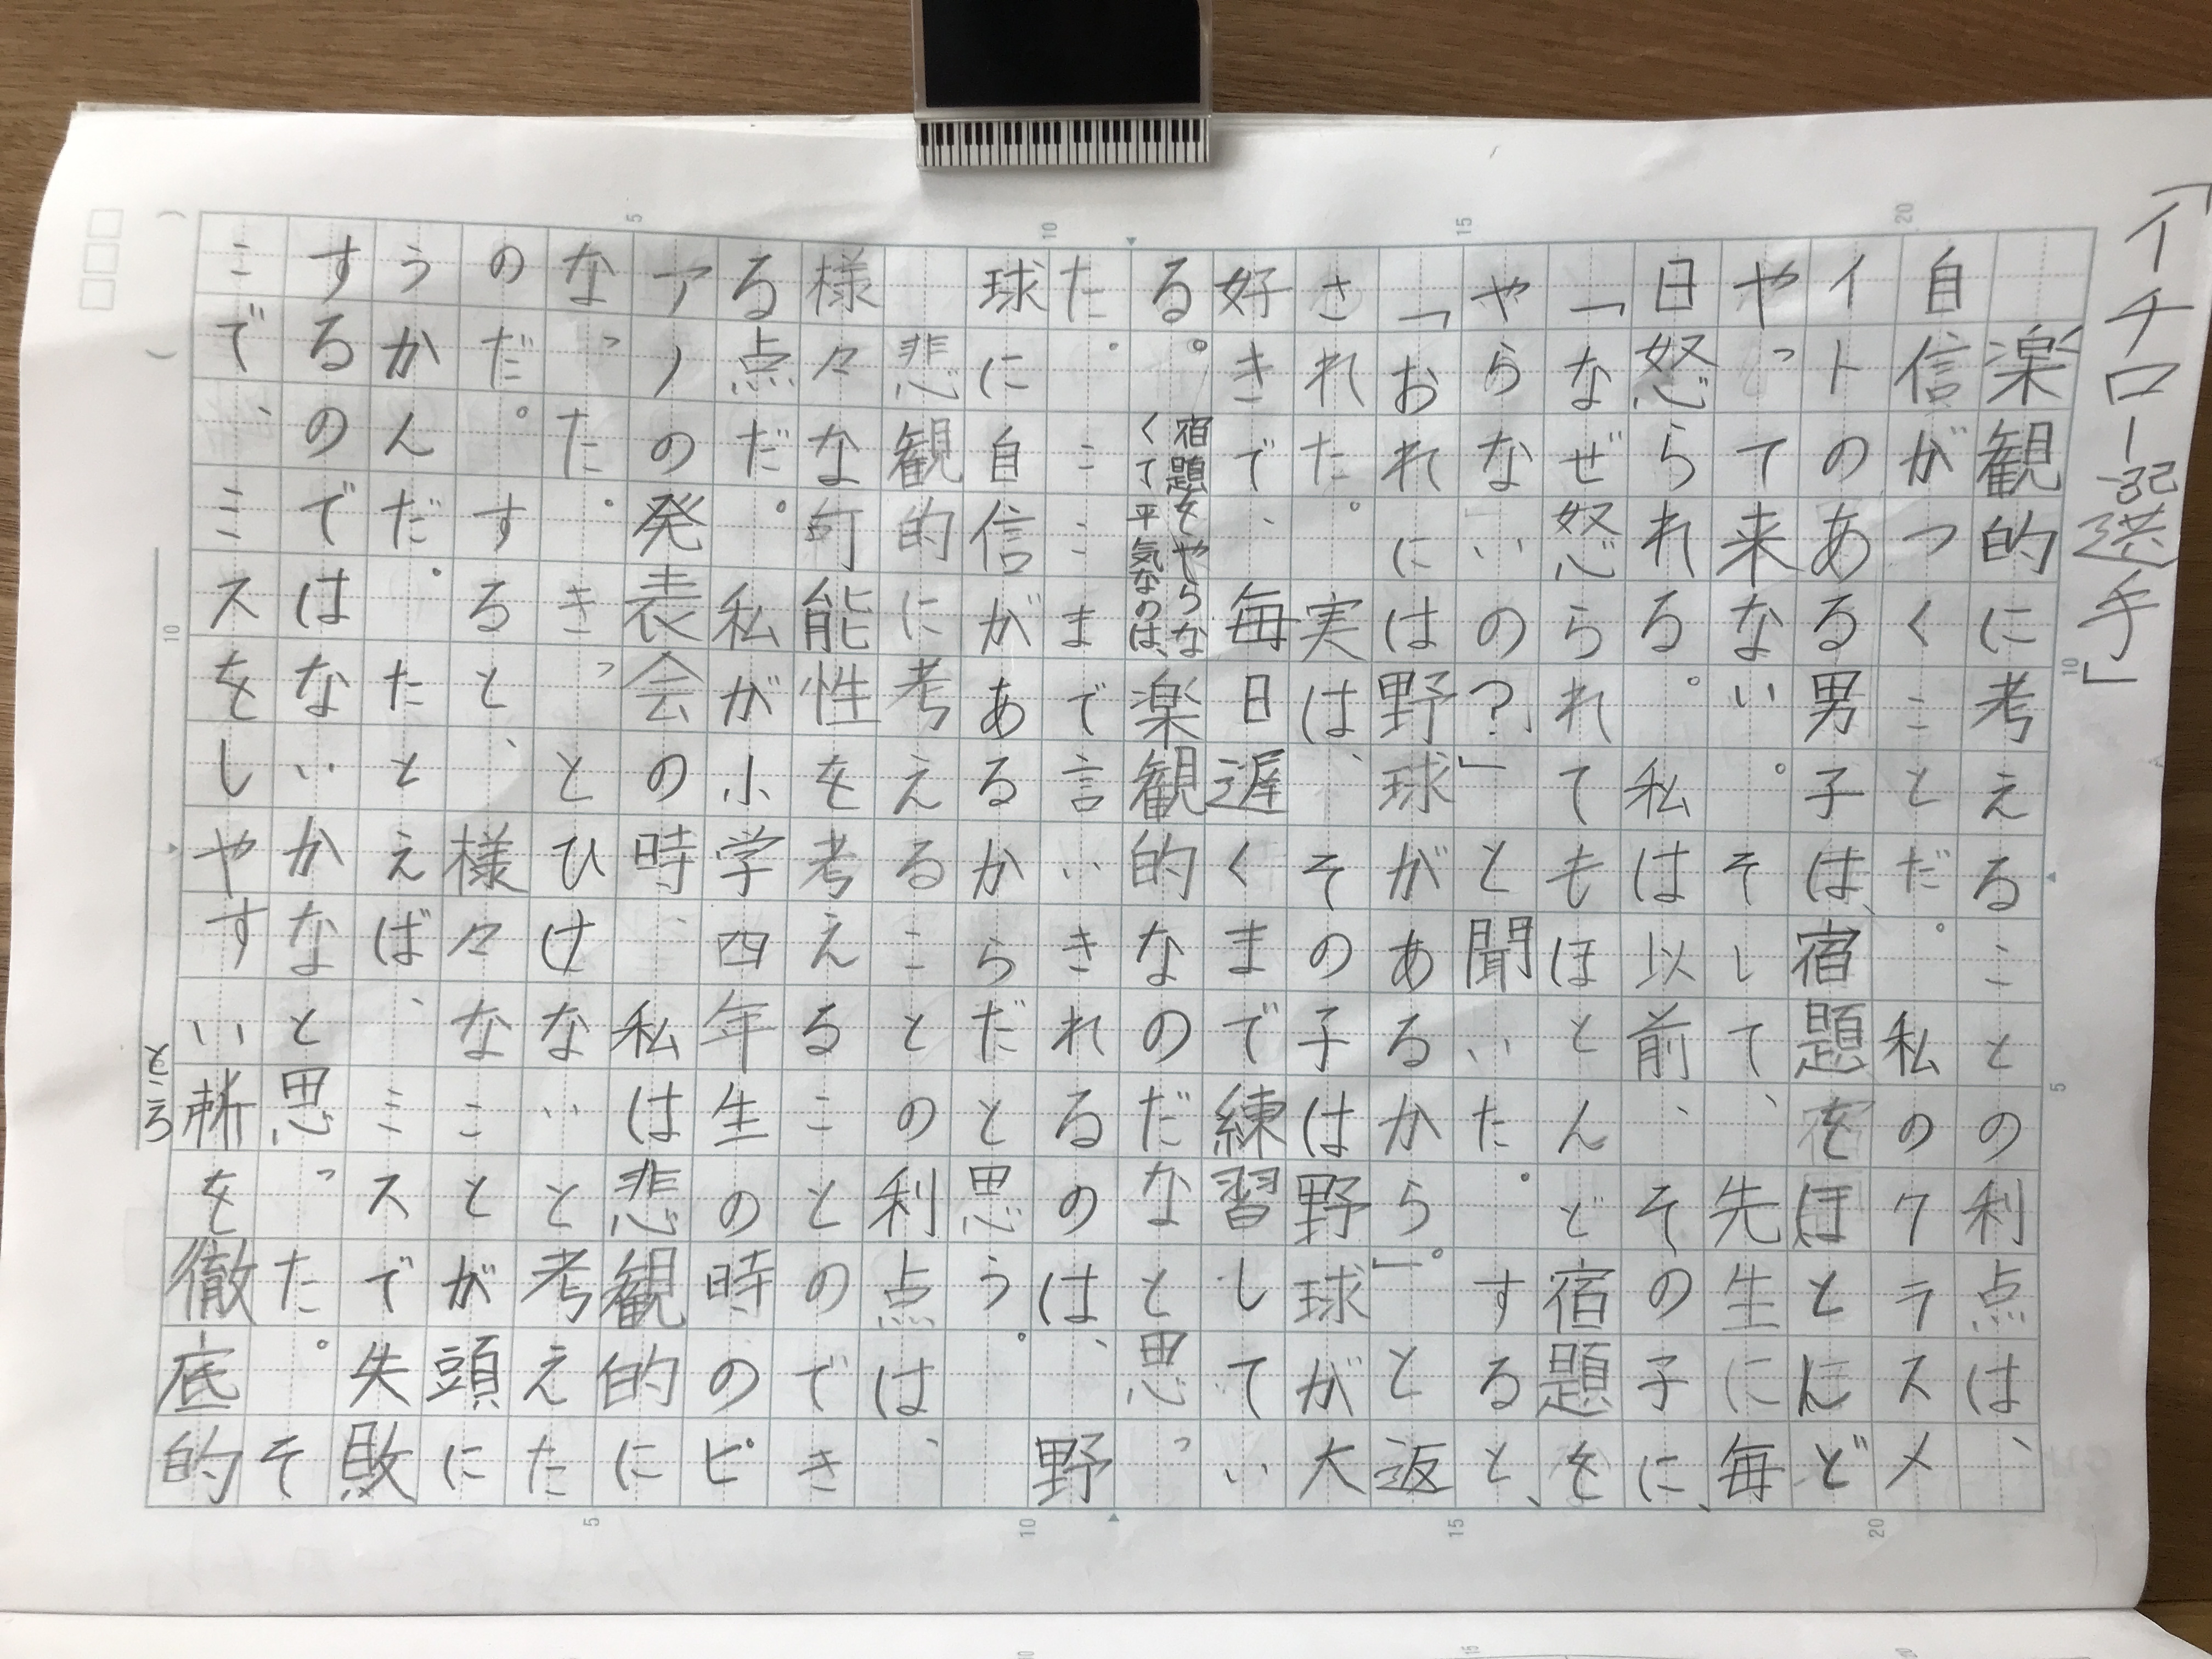 「イチロー選手」
楽観的に考えることの利点は、
自信がつくことだ。私のクラスメ
イトのある男子は、宿題をほとんど
やって来ない。そして、先生に毎
日怒られる。私は以前、その子に、
「なぜ怒られてもほとんど宿題を
やらないの?」と聞いた。すると、
「おれには野球があるから。」と返
された。実は、その子は野球が大
好きで、毎日遅くまで練習してい
る。宿題をやらなくて平気なのは、楽観的なのだなと思っ
た。ここまで言いきれるのは、野
球に自信があるからだと思う。
悲観的に考えることの利点は、
様々な可能性を考えることのでき
る点だ。私が小学四年生の時のピ
アノの発表会の時、私は悲観的に
なった。きっとひけないと考えた
のだ。すると、様々なことが頭に
うかんだ。たとえば、ミスで失敗
するのではないかなと思った。そ
こで、ミスをしやすい所を徹底的
ところ
5
10
15
20
5
10
15
20
5
10
10